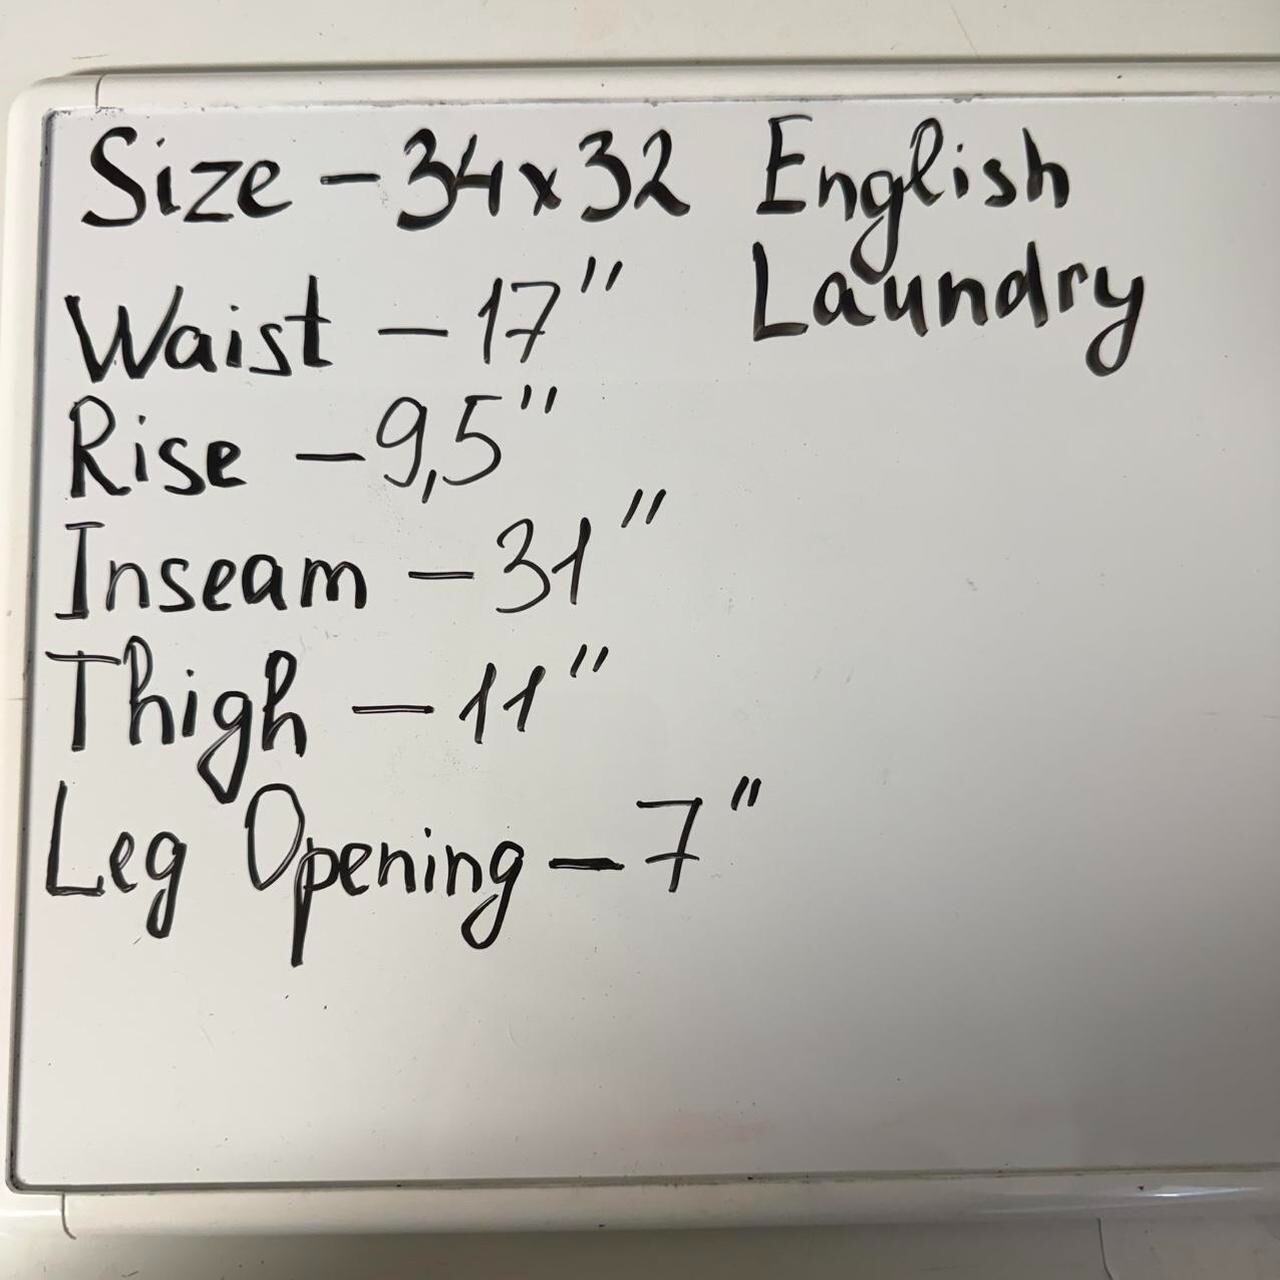 Size - 34x32
Waist - 17"
Rise - 9,5"
Inseam - 31"
Thigh - 11"
Leg Opening - 7"
English
Laundry